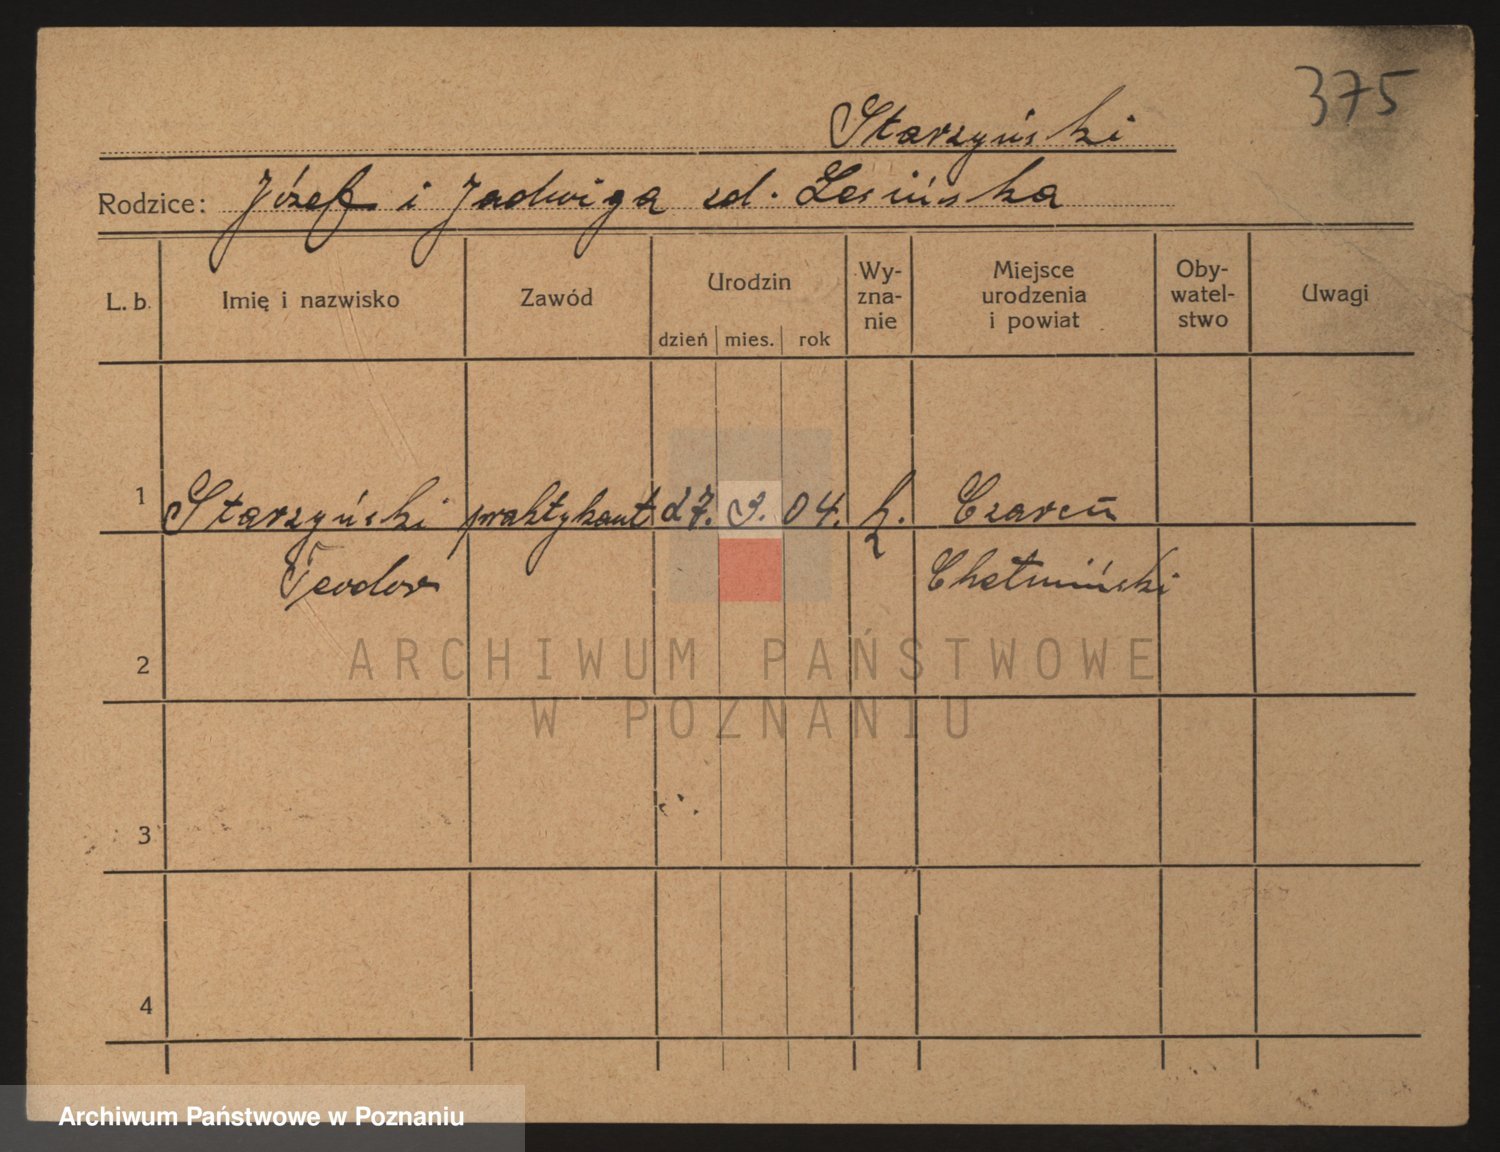 375
Starzyński
Rodzice: Józef i Jadwiga zd. Lesińska
L. b.
Imię i nazwisko
Zawód
Urodzin
dzień mies. rok
Wy-
zna-
nie
Miejsce
urodzenia
i powiat
Oby-
watel-
stwo
Uwagi
1 Starzyński praktykant 27. 04.
Teodor Chełmiński
2
3
4
ARCHIWUM PAŃSTWOWE
W POZNANIU
Archiwum Państwowe w Poznaniu